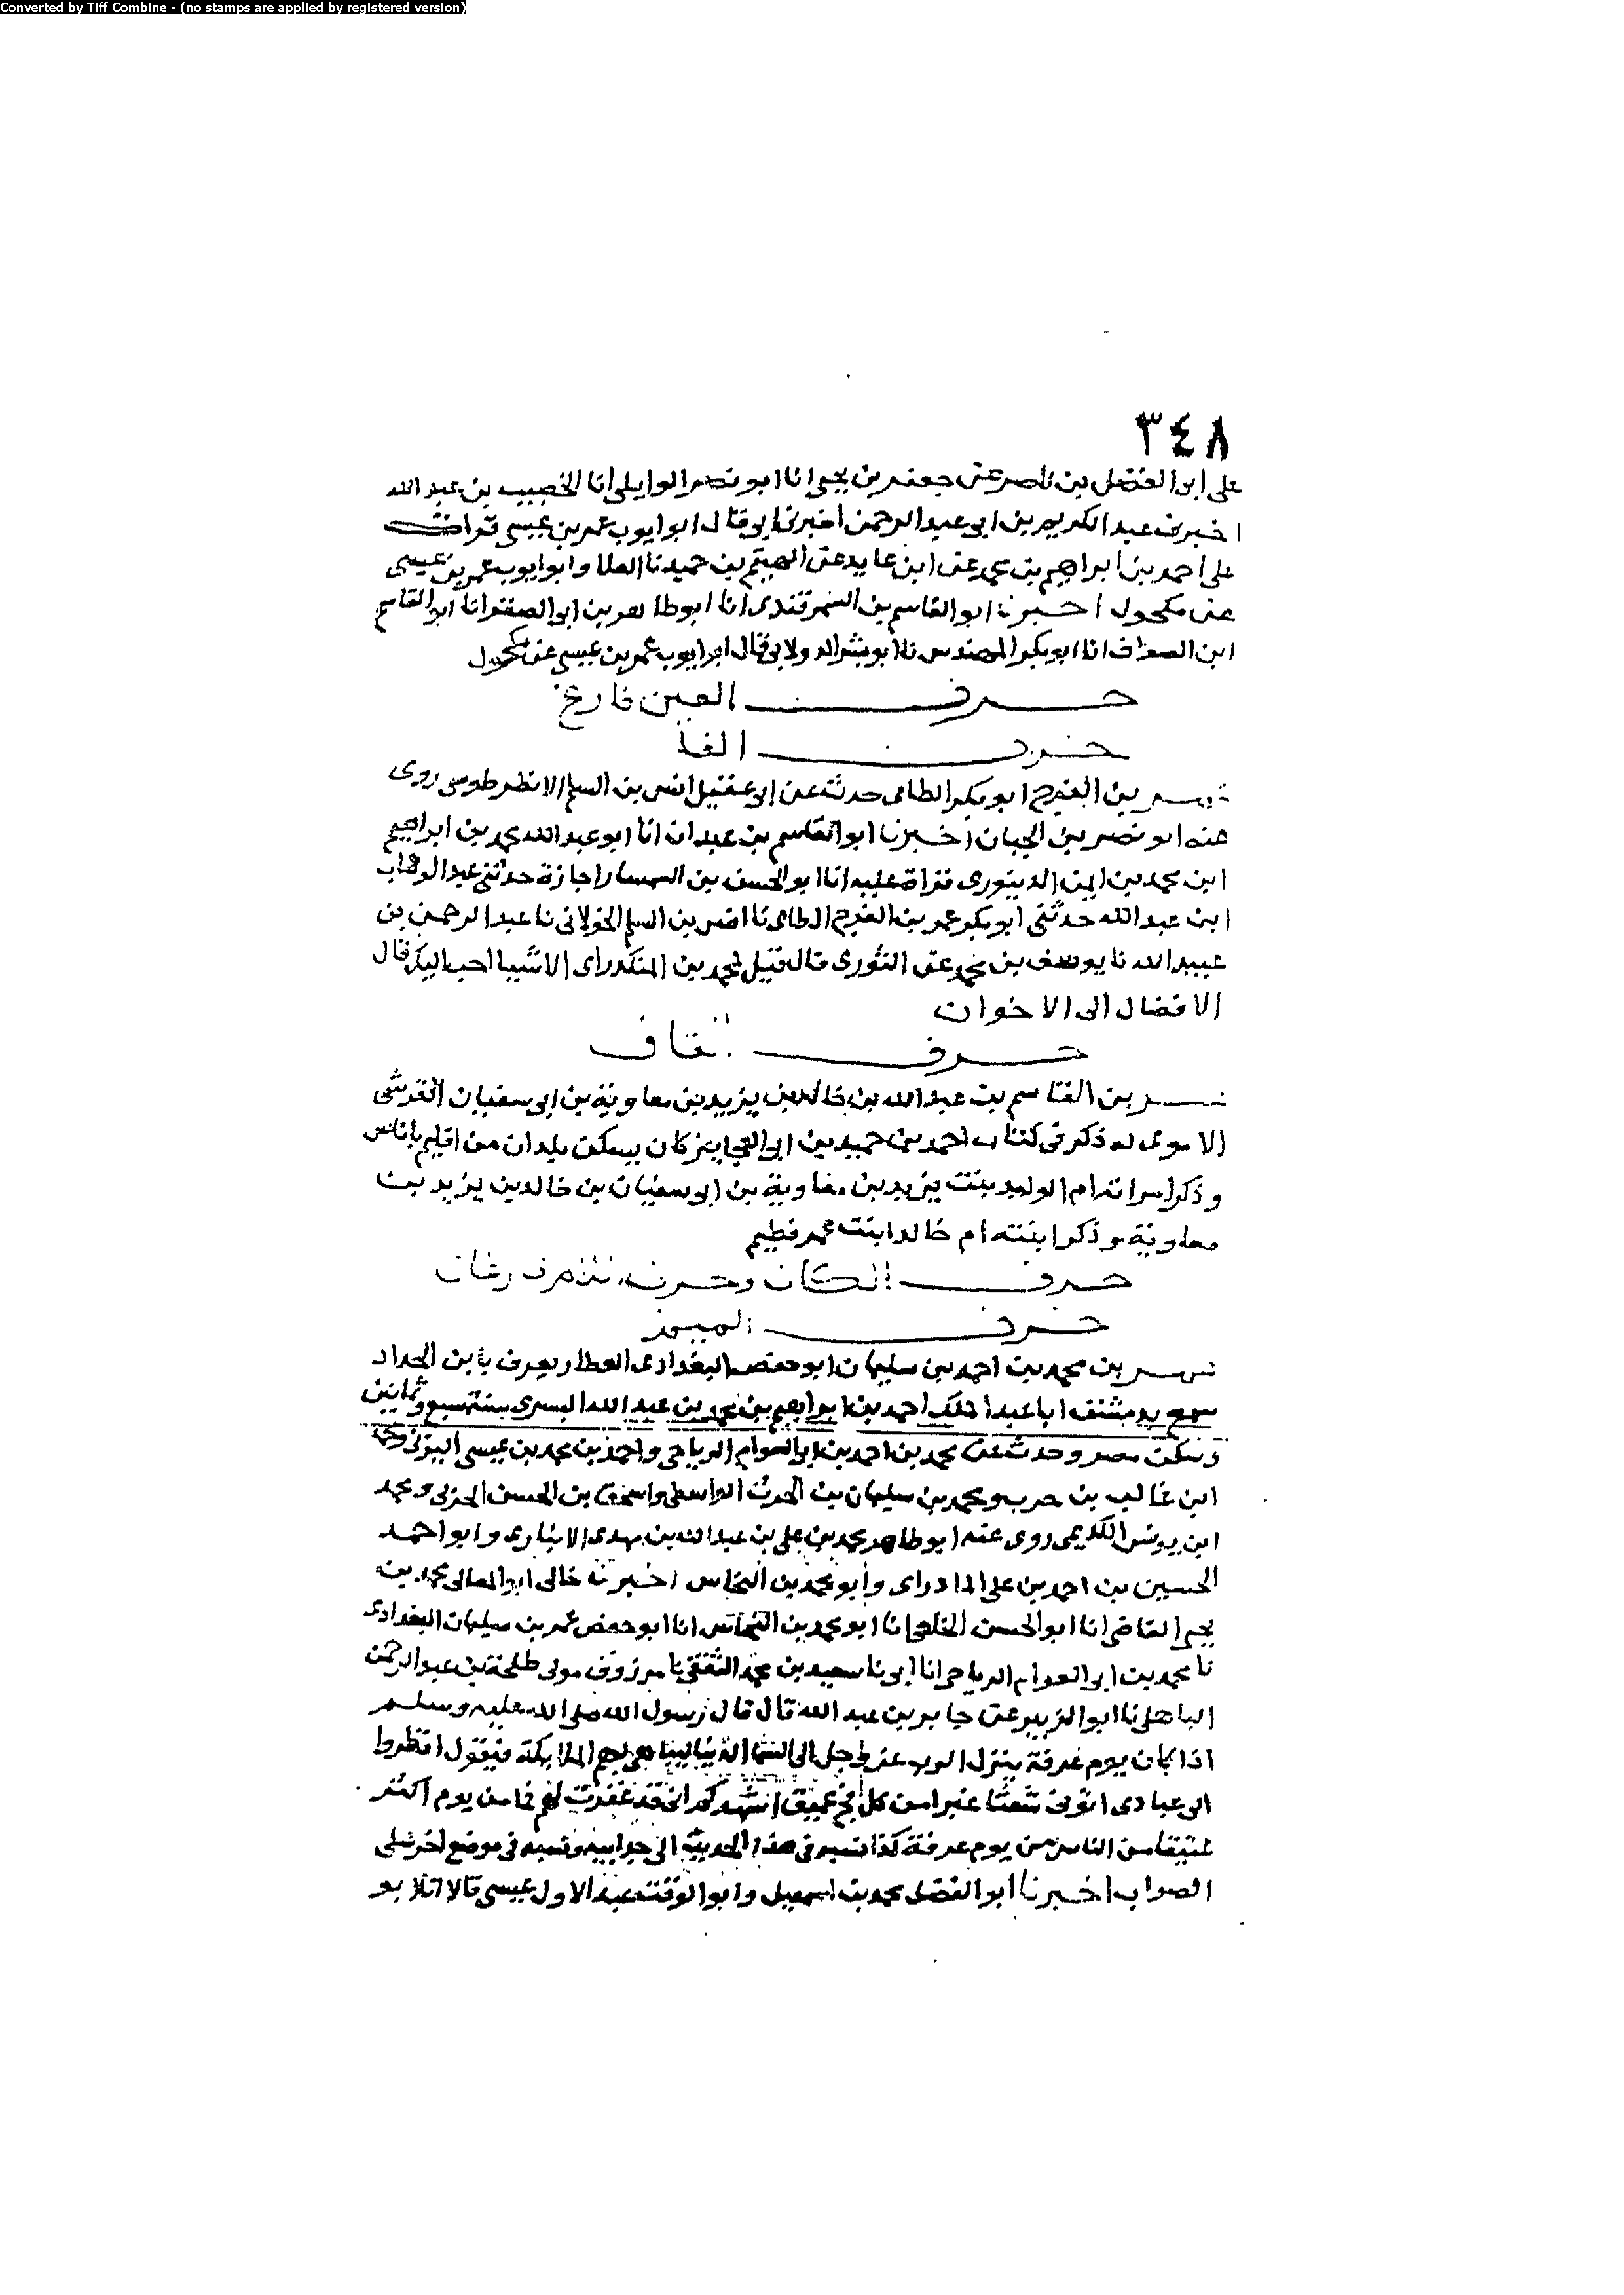 Converted by Tiff Combine - (no stamps are applied by registered version)
٣٤٨
على ابى الفضل بن ناصر عن جعفر بن يحيى انا ابو نصر الوايلى انا الخصيب بن عبد الله
اخبرنى عبد الكريم بن ابى عبد الرحمن اخبرنى ابى قال ابو ايوب عمر بن عيسى قرات
على احمد بن ابراهيم بن عن ابن عايد عن الهيثم بن حميد نا العلا وابو ايوب عمر بن عيسى
عن مكحول اخبرنا ابو القاسم بن السمرقندى انا ابو طاهر بن ابى الصقر انا ابو القاسم
ابن الصواف انا ابو بكر المهندس نا ابو بشر الدولابى قال ابو ايوب عمر بن عيسى عن مكحول
حرف الغين فارغ
حرف الفا
عمر بن الفرج ابو بكر الطاى حدث عن ابى عقيل انس بن السلم الانطرطوسى روى
عنه ابو نصر بن الجبان اخبرنا ابو القاسم بن عبدان انا ابو عبد الله محمد بن ابراهيم
ابن محمد بن ايمن الدينورى قراة عليه انا ابو الحسن بن السمسار اجازة حدثنى عبد الوهاب
ابن عبد الله حدثنى ابو بكر عمر بن الفرج الطاى نا انس بن السلم الخولانى نا عبد الرحمن بن
عبيد الله نا يوسف بن محمد عن الثورى قال قيل لمحمد بن المنكدر اى الاشيا احب اليك قال
الافضال الى الاخوان
حرف القاف
عمر بن القاسم بن عبد الله بن خالد بن يزيد بن معاوية بن ابى سفيان القرشى
الاموى له ذكر فى كتاب احمد بن حميد بن ابى العجايز كان يسكن بلدان من اقليم باناس
وذكر امراته ام الوليد بنت يزيد بن معاوية بن ابى سفيان بن خالد بن يزيد بن
معاوية وذكر ابنته ام خالد ابنت عمر فطيم
حرف الكاف وحرف اللام فارغان
حرف الميم
عمر بن محمد بن احمد بن سليمان ابو حفص البغدادى العطار يعرف بابن الحداد
سمع بدمشق ابا عبد الملك احمد بن ابراهيم بن محمد بن عبد الله البسرى سنة سبع وثمانين
وسكن مصر وحدث عن محمد بن احمد بن ابى العوام الرياحى واحمد بن محمد بن عيسى البرتى ومحمد
ابن غالب بن حرب ومحمد بن سليمان بن الحرث الواسطى واسحق بن الحسن الحربى ومحمد
ابن يونس الكديمى روى عنه ابو طاهر محمد بن على بن عبد الله بن مهدى الانبارى وابو احمد
الحسين بن احمد بن على المادراى وابو محمد بن النحاس اخبرنا خالى ابو المعالى محمد بن
يحيى القاضى انا ابو الحسن الخلعى انا ابو محمد بن النحاس انا ابو حفص عمر بن سليمان البغدادى
نا محمد بن ابى العوام الرياحى انا ابى نا سعيد بن محمد الثقفى نا مرزوق مولى طلحة بن عبد الرحمن
الباهلى نا ابو الزبير عن جابر بن عبد الله قال قال رسول الله صلى الله عليه وسلم
اذا كان يوم عرفة ينزل الرب عز وجل الى السما الدنيا ليباهى بهم الملايكة فيقول انظروا
الى عبادى اتونى شعثا غبرا من كل فج عميق اشهدكم انى قد غفرت لهم فما من يوم اكثر
عتيقا من الناس من يوم عرفة كذا نسبه فى هذا الحديث الى جد ابيه ونسبه فى موضع اخر على
الصواب اخبرنا ابو الفضل محمد بن اسمعيل وابو الوقت عبد الاول عيسى قالا انا ابو